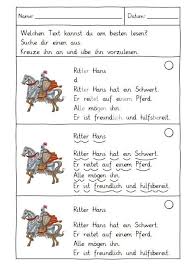 Name:
Datum:
Welchen Text kannst du am besten lesen?
Suche dir einen aus.
Kreuze ihn an und übe ihn vorzulesen.
Ritter Hans
d
Ritter Hans hat ein Schwert.
Er reitet auf einem Pferd.
Alle mögen ihn.
Er ist freundlich und hilfsbereit.
Ritter Hans
Ritter Hans hat ein Schwert.
Er reitet auf einem Pferd.
Alle mögen ihn.
Er ist freundlich und hilfsbereit.
Ritter Hans
Ritter Hans hat ein Schwert.
Er reitet auf einem Pferd.
Alle mögen ihn.
Er ist freundlich und hilfsbereit.